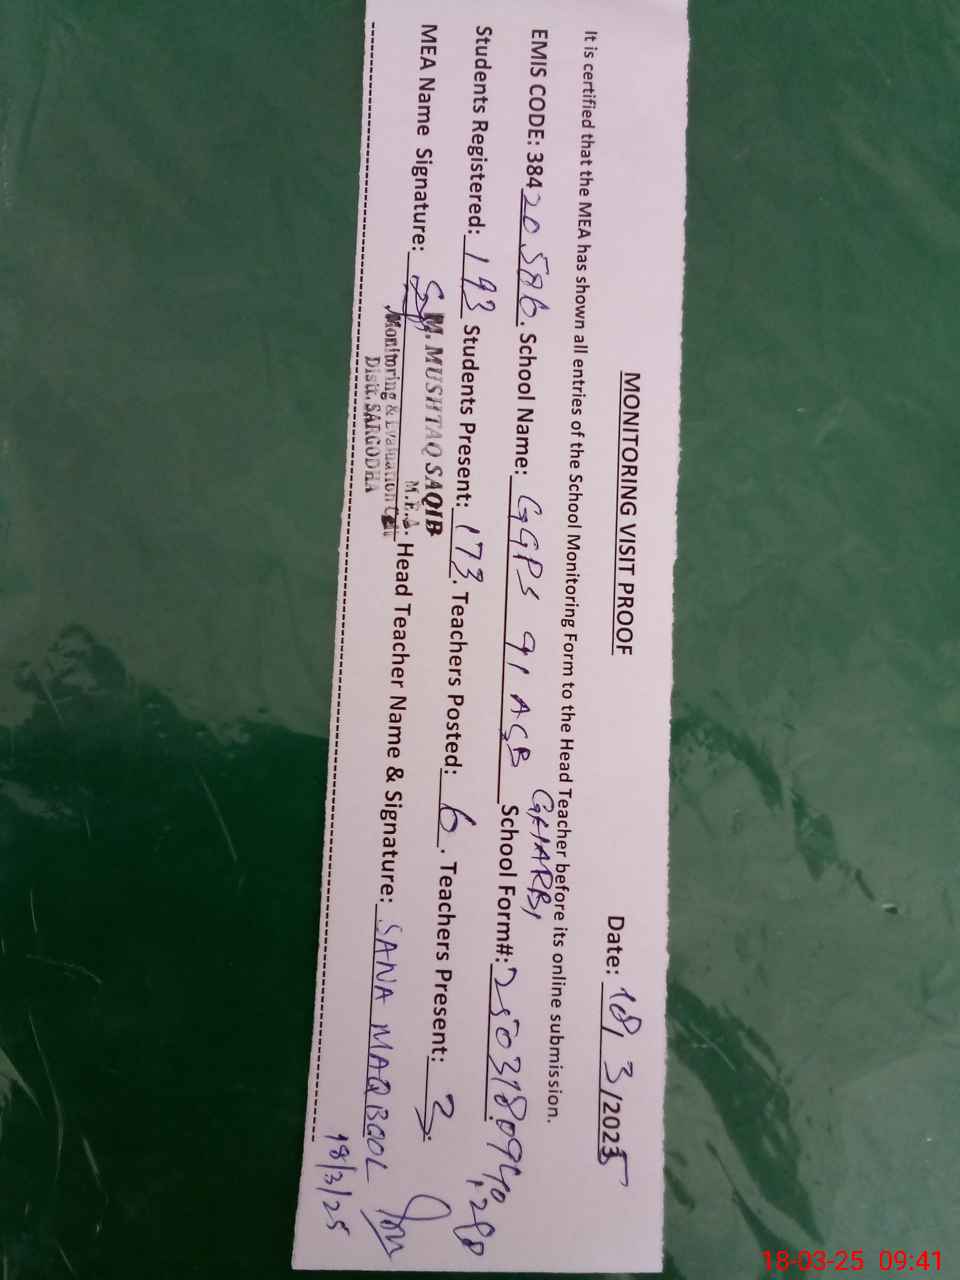 MONITORING VISIT PROOF Date: 18, 3/2025
It is certified that the MEA has shown all entries of the School Monitoring Form to the Head Teacher before its online submission.
GHARBI
EMIS CODE: 38420586. School Name: GGPS 91 ASB School Form#: 250318.0940,280
Students Registered: 193 Students Present: 173. Teachers Posted: 6. Teachers Present: 3.
MEA Name Signature: Head Teacher Name & Signature: SANA MAQBOOL
M. MUSHTAQ SAQIB
M.E.A.
Monitoring & Evaluation Cell
Distt. SARGODHA
18/3/25
18-03-25 09:41